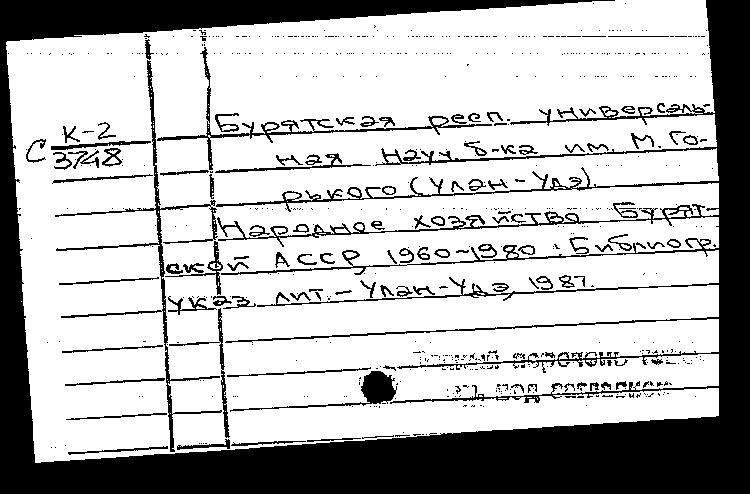 С К-2
3748
Бурятская респ. универсаль-
ная науч. б-ка им. М. Го-
рького (Улан-Удэ).
Народное хозяйство Бурят-
ской АССР, 1960-1980 : Библиогр.
указ. лит. - Улан-Удэ, 1987.
перечень
см. под заглавием